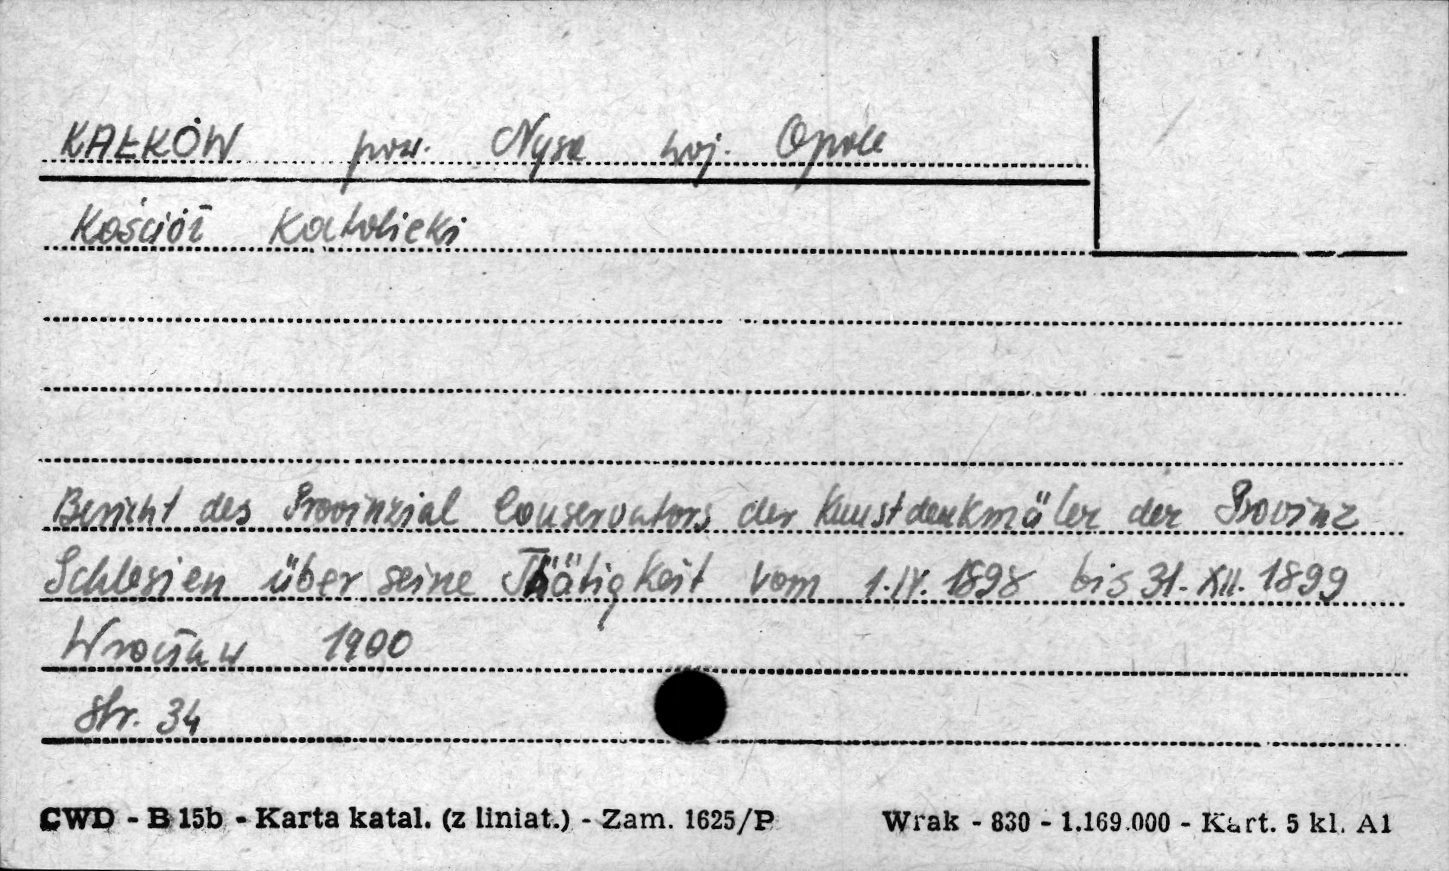 KAŁKÓW pow. Nysa woj. Opole
Kościół Katolicki
Bericht des Provinzial Conservators der Kunstdenkmäler der Provinz
Schlesien über seine Thätigkeit vom 1.IV. 1898 bis 31.XII. 1899
Wrocław 1900
Str. 34
CWD - B 15b - Karta katal. (z liniat.) - Zam. 1625/P Wrak - 830 - 1.169.000 - Kart. 5 kl. A1